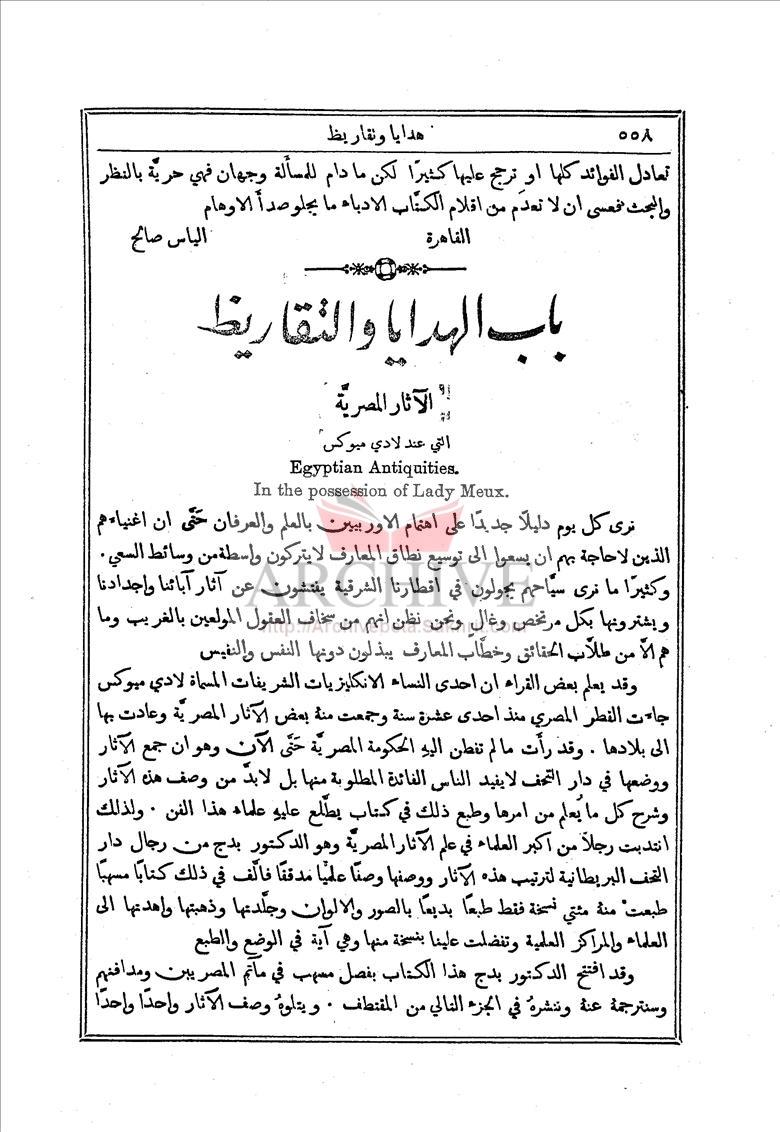 ٥٥٨
هدايا وتقاريظ
تعادل الفوائد كلها او ترجح عليها كثيرًا لكن ما دام للمسألة وجهان فهي حريَّة بالنظر
والبحث فعسى ان لا تعدَم من اقلام الكتَّاب الادباء ما يجلو صدأ الاوهام
القاهرة
الياس صالح
باب الهدايا والتقاريظ
الآثار المصريَّة
التي عند لادي ميوكس
Egyptian Antiquities.
In the possession of Lady Meux.
نرى كل يوم دليلًا جديدًا على اهتمام الاوربيين بالعلم والعرفان حتَّى ان اغنياءهم
الذين لا حاجة بهم ان يسعوا الى توسيع نطاق المعارف لا يتركون واسطة من وسائط السعي .
وكثيرًا ما نرى سيَّاحهم يجولون في أقطارنا الشرقية يفتشون عن آثار آبائنا واجدادنا
ويشترونها بكل مرتخص وغالٍ ونحن نظن انهم من سخاف العقول المولعين بالغريب وما
هم الَّا من طلَّاب الحقائق وخطَّاب المعارف يبذلون دونها النفس والنفيس
وقد يعلم بعض القراء ان احدى النساء الانكليزيات الشريفات المسماة لادي ميوكس
جاءت القطر المصري منذ احدى عشرة سنة وجمعت منهُ بعض الآثار المصريَّة وعادت بها
الى بلادها . وقد رأت ما لم تفطن اليهِ الحكومة المصريَّة حتَّى الآن وهو ان جمع الآثار
ووضعها في دار التحف لا يفيد الناس الفائدة المطلوبة منها بل لا بدَّ من وصف هذه الآثار
وشرح كل ما يُعلم من امرها وطبع ذلك في كتاب يطَّلع عليهِ علماء هذا الفن . ولذلك
انتدبت رجلًا من اكبر العلماء في علم الآثار المصريَّة وهو الدكتور بدج من رجال دار
التحف البريطانية لترتيب هذه الآثار ووصفها وصفًا علميًّا مدققًا فالَّف في ذلك كتابًا مسهبًا
طبعت منهُ مئتي نسخة فقط طبعًا بديعًا بالصور والالوان وجلَّدتها وذهبتها واهدتها الى
العلماء والمراكز العلمية وتفضلت علينا بنسخة منها وهي آية في الوضع والطبع
وقد افتتح الدكتور بدج هذا الكتاب بفصل مسهب في مآتم المصريين ومدافنهم
وسنترجمهُ عنهُ وننشرهُ في الجزء التالي من المقتطف . ويتلوهُ وصف الآثار واحدًا واحدًا
ARCHIVE
http://Archivebeta.Sakhrit.com